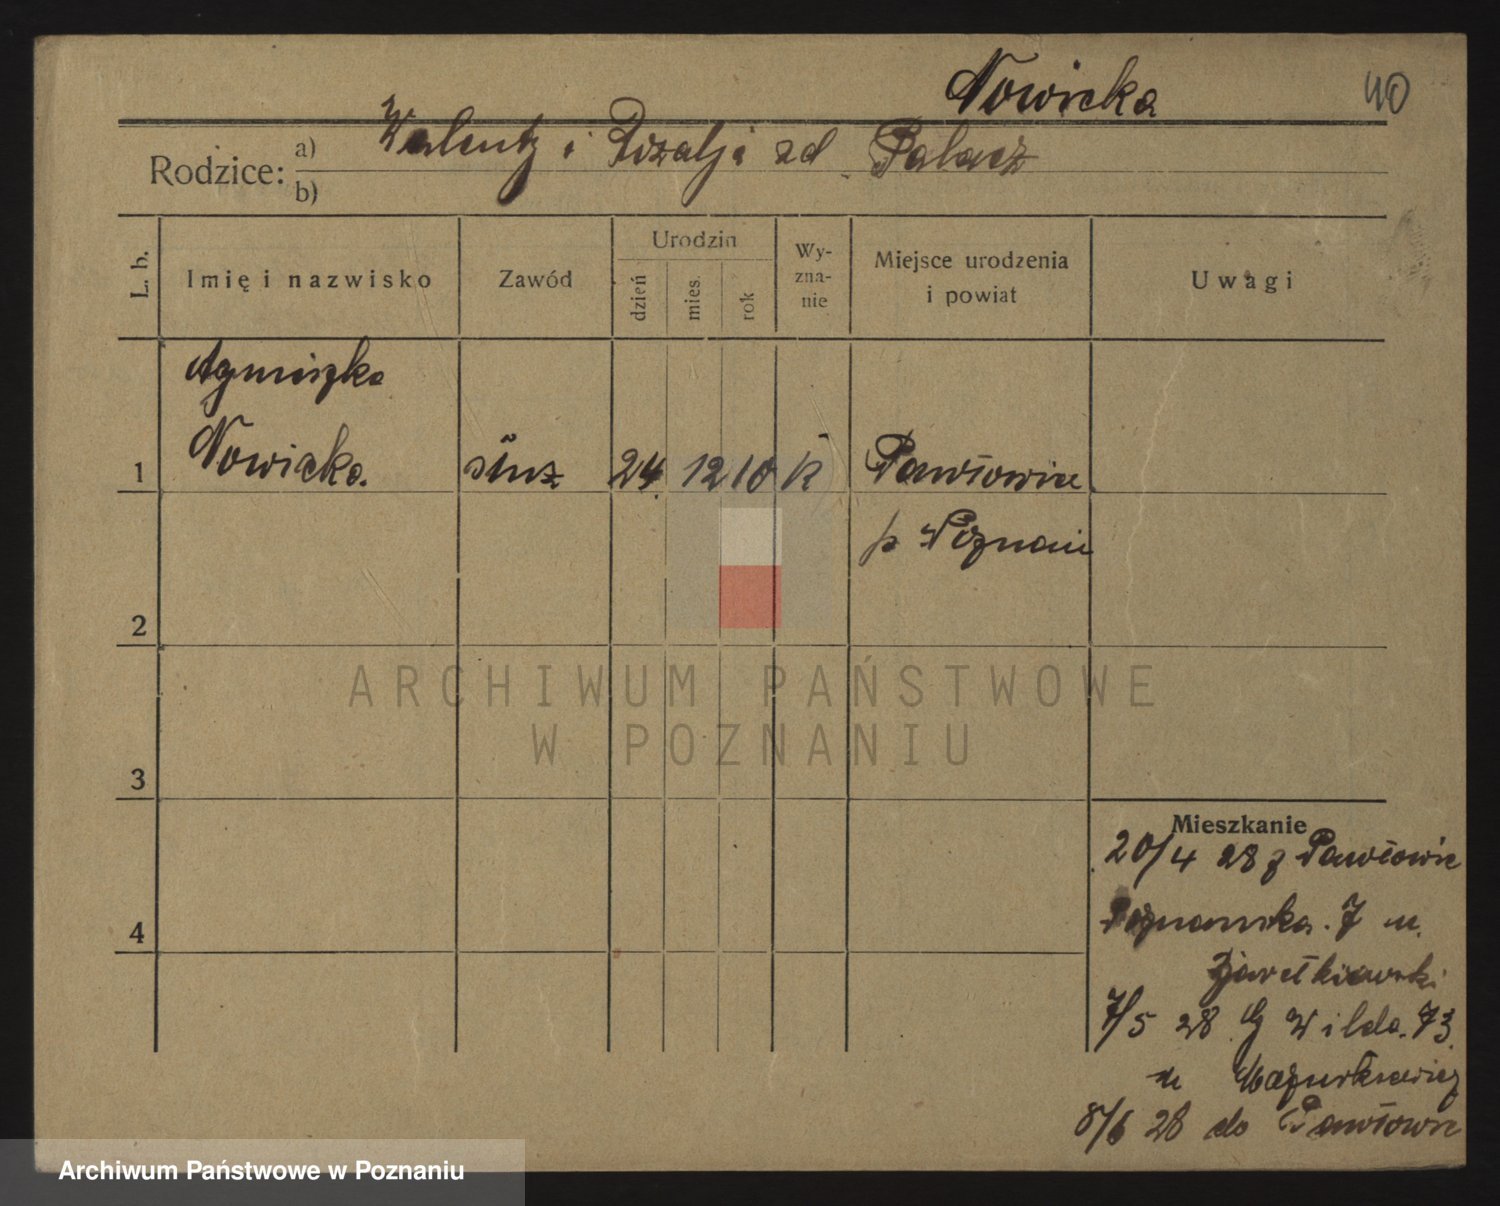 Nowicka 40
Rodzice: a) Walenty i Rozalja zd Palacz
b)
L. b.
Imię i nazwisko
Zawód
Urodzin
dzień
mies.
rok
Wy-
zna-
nie
Miejsce urodzenia
i powiat
Uwagi
Agnieszka
1 Nowicka. służ 24. 12 10 k Pawłowice
p Poznań
2
ARCHIWUM PAŃSTWOWE
W POZNANIU
3
Mieszkanie
20/4 28 z Pawłowic
4 Poznańska. 7 u.
7/5 28 G Wilda. 73.
u Mazurkiewicz
8/6 28 do Pawłowic
Archiwum Państwowe w Poznaniu